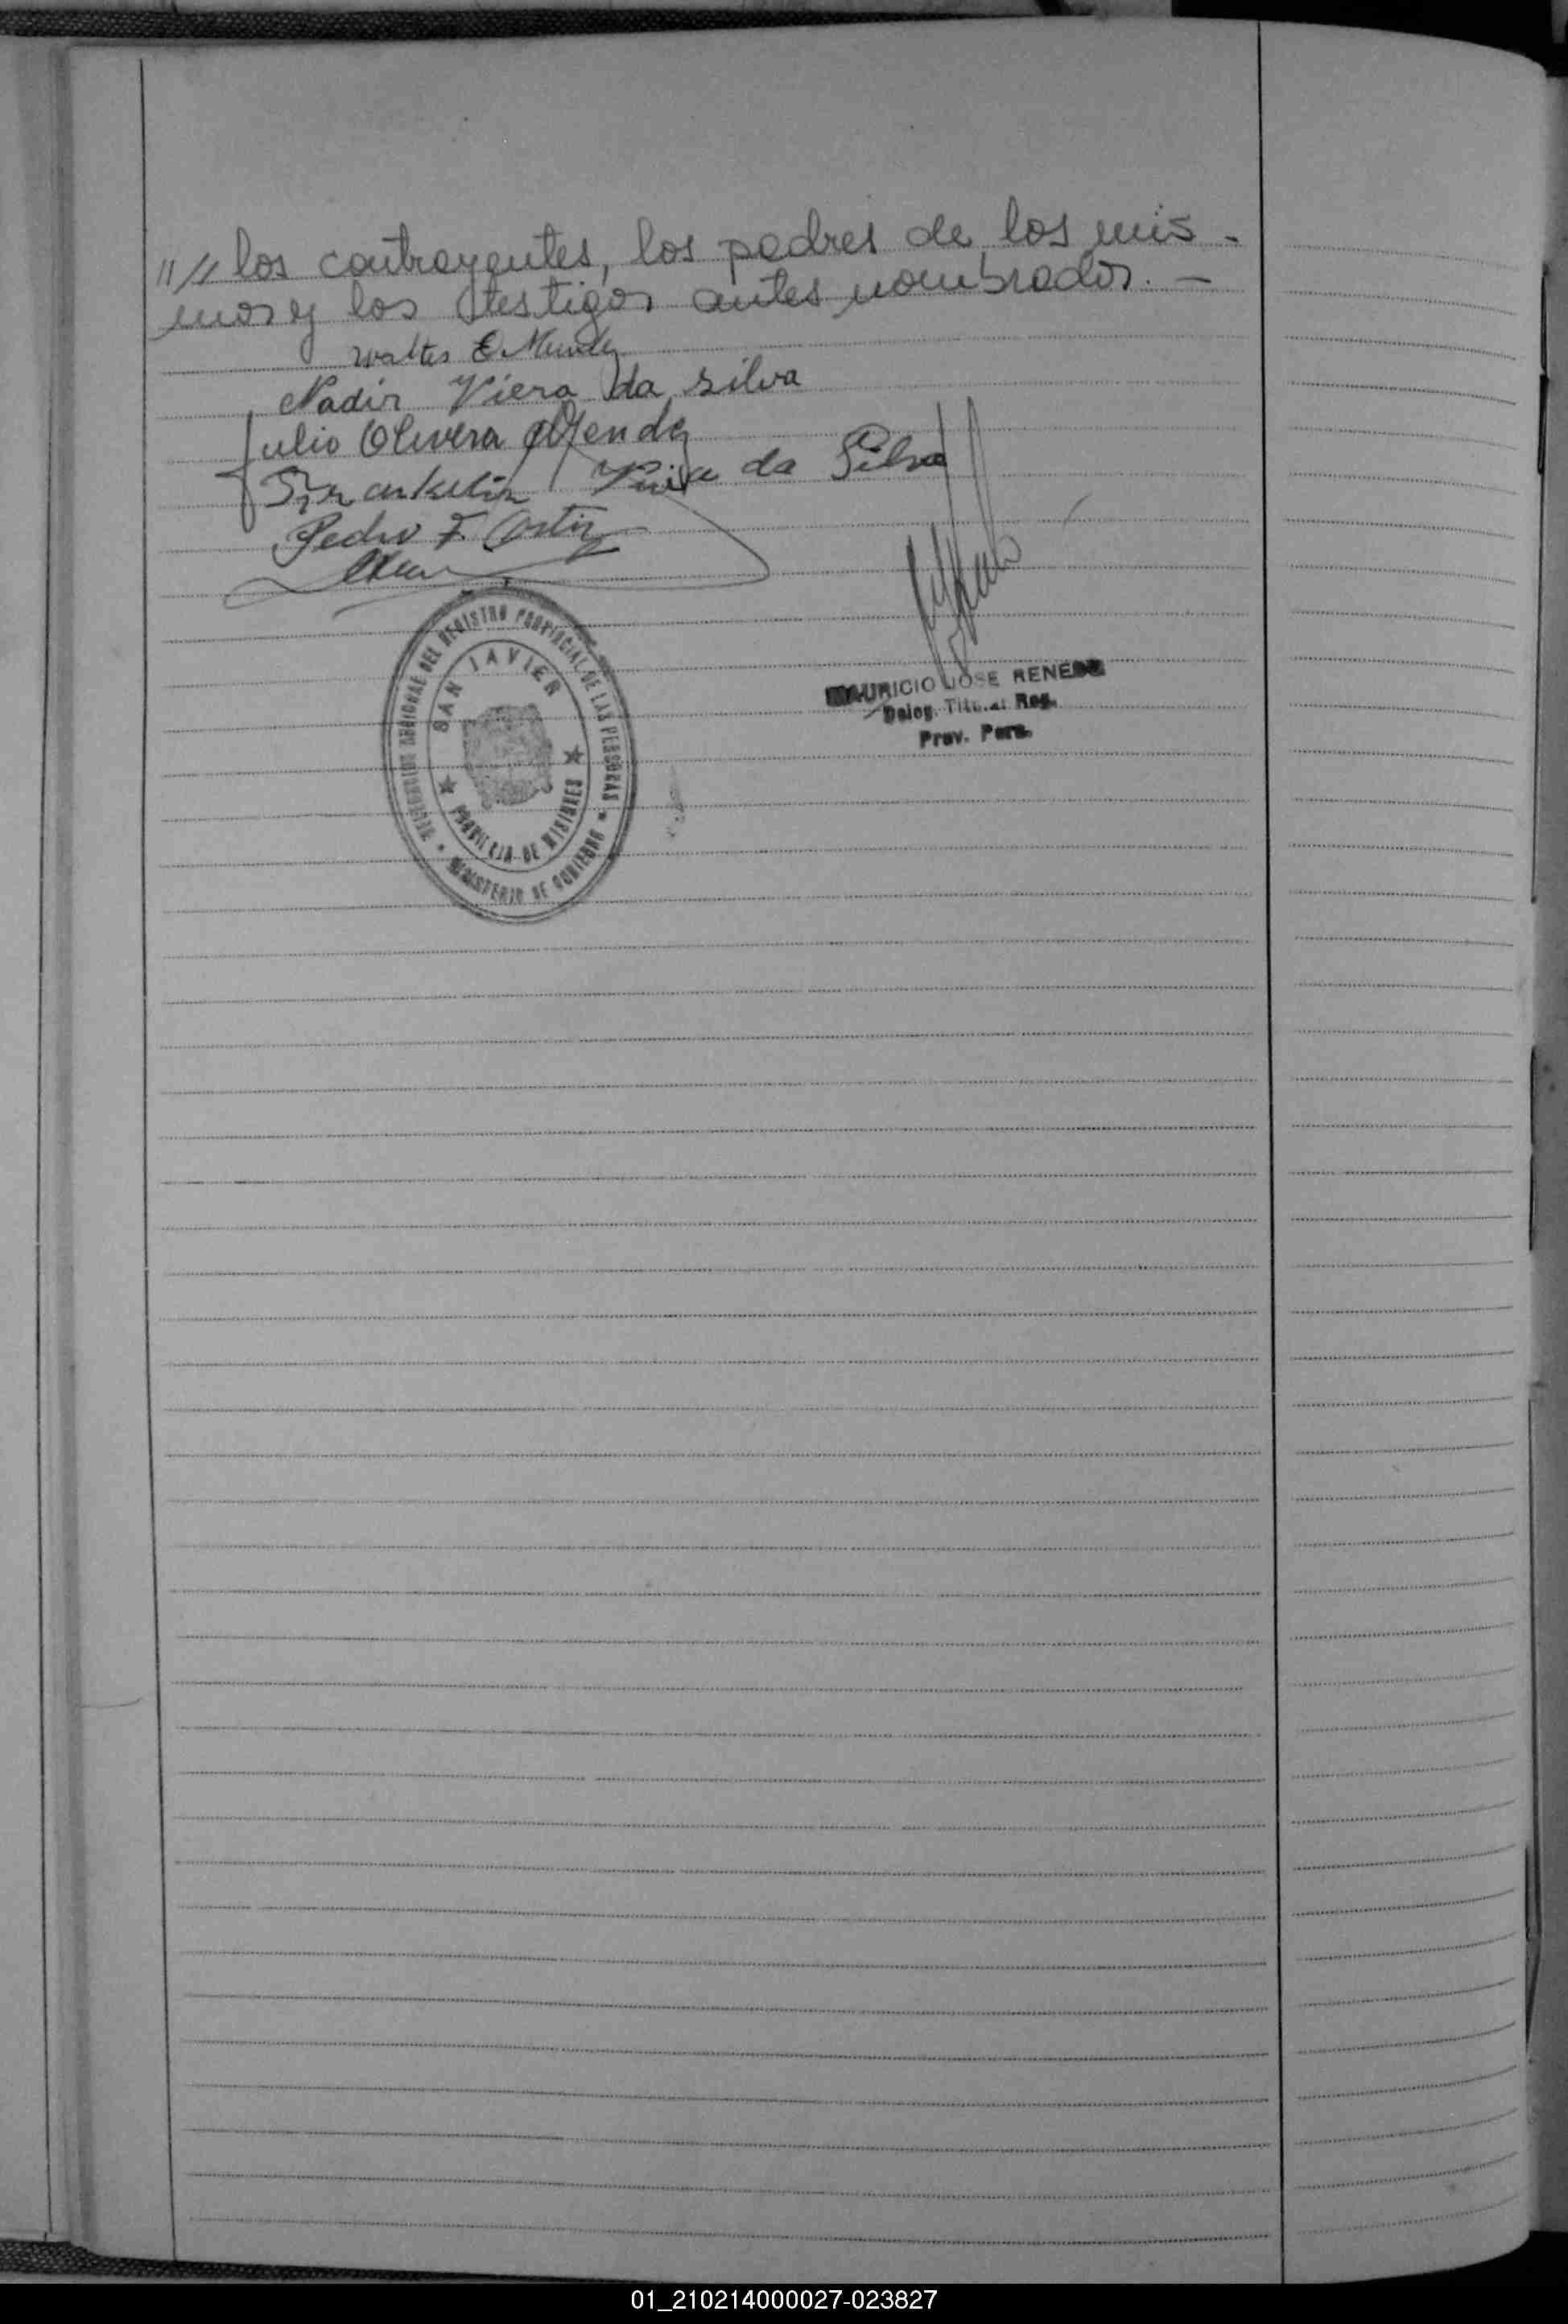 "// los contrayentes, los padres de los mis-
mos y los testigos antes nombrados. —
Walter E. Mendez
Nadir Viera da silva
Julio Olivera Mendez
Viera da Silva
Pedro F. Ortiz
DEL REGISTRO PROVINCIAL DE LAS PERSONAS
SAN JAVIER
PROVINCIA DE MISIONES
MINISTERIO DE GOBIERNO
MAURICIO JOSE
Deleg. Titular Reg.
Prov. Pers.
01_210214000027-023827